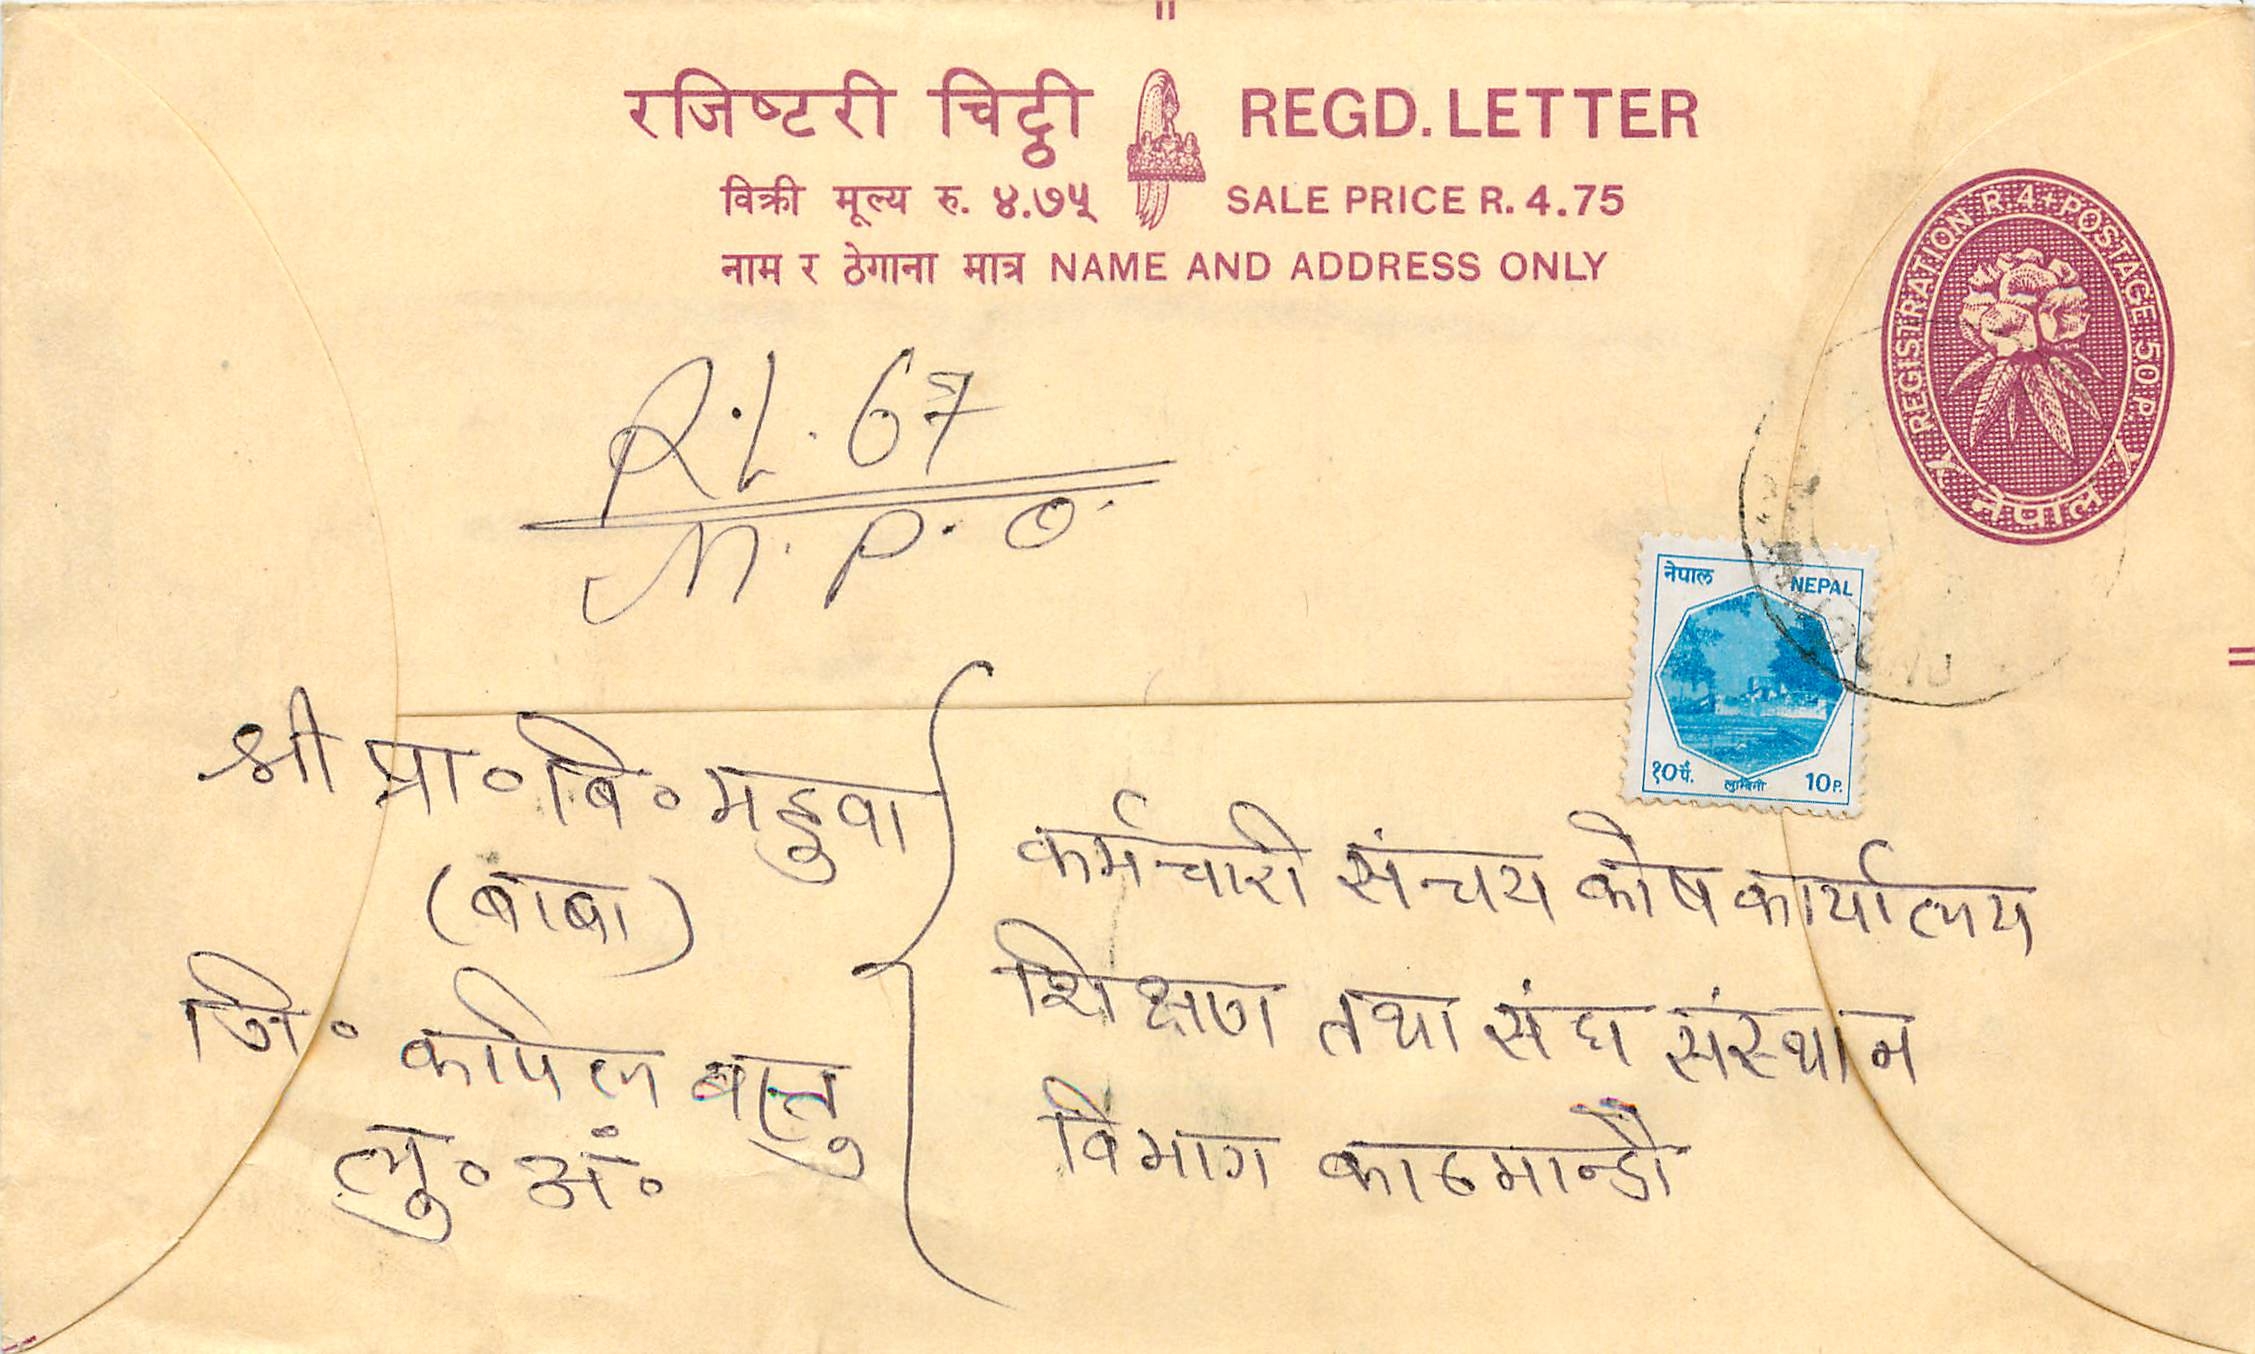 रजिष्टरी चिट्ठी REGD. LETTER
विक्री मूल्य रु. ४.७५ SALE PRICE R. 4.75
नाम र ठेगाना मात्र NAME AND ADDRESS ONLY
REGISTRATION R. 4 + POSTAGE 50 P.
नेपाल
R.L. 67
M.P.O.
नेपाल NEPAL
१०पै. लुम्बिनी 10P.
श्री प्रा॰ बि॰ महुवा
(बाबा)
जि॰ कपिल बस्तु
लु॰ अं॰
कर्मचारी संचय कोष कार्यालय
शिक्षण तथा संघ संस्थान
विभाग काठमान्डौ